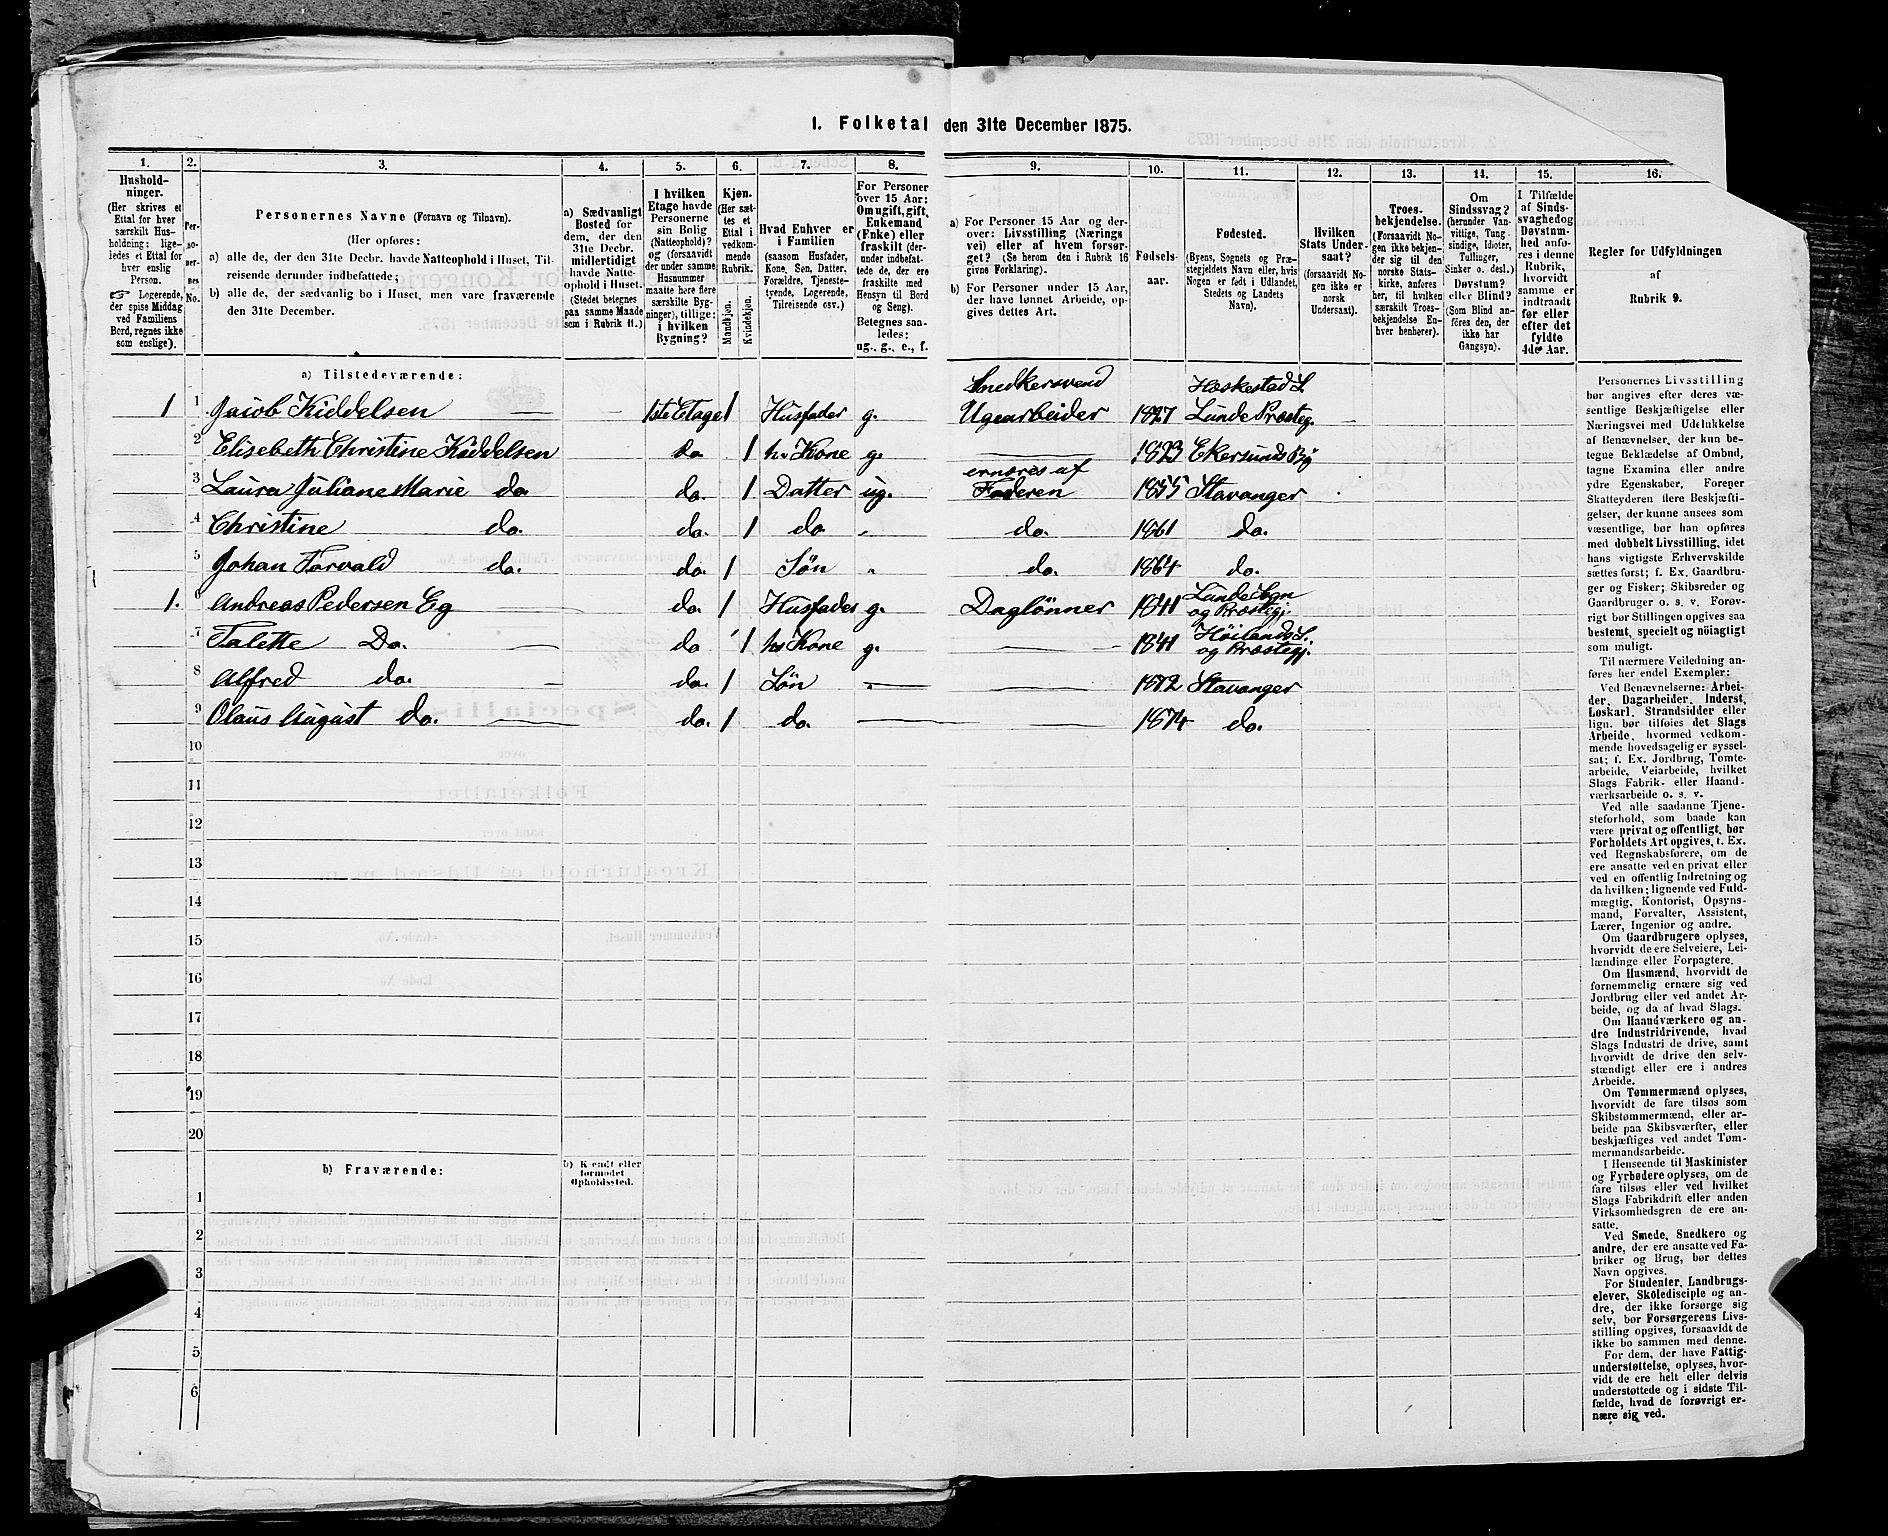 1. Folketal den 31te December 1875.
1. 2. 3. 4. 5. 6. 7. 8. 9. 10. 11. 12. 13. 14. 15. 16.
Hushold-
ninger.
(Her skrives et
Ettal for hver
særskilt Hus-
holdning; lige-
ledes et Ettal for
hver enslig
Person.
☞ Logerende,
der spise Middag
ved Familiens
Bord, regnes ikke
som enslige).
Per-
so-
ner-
nes
No.
Personernes Navne (Fornavn og Tilnavn).
(Her opføres:
a) alle de, der den 31te Decbr. havde Natteophold i Huset, Til-
reisende derunder indbefattede;
b) alle de, der sædvanlig bo i Huset, men vare fraværende
den 31te December.
a) Sædvanligt
Bosted for
dem, der den
31te Decbr.
midlertidigt
havde Natte-
ophold i Huset.
(Stedet betegnes
paa samme Maade
som i Rubrik 11.)
I hvilken
Etage havde
Personerne
sin Bolig
(Natteophold)?
og (forsaavidt
der under samme
Husnummer
maatte høre flere
særskilte Byg-
ninger), tillige:
i hvilken
Bygning?
Kjøn.
(Her sæt-
tes et
Ettal i
vedkom-
mende
Rubrik.
Mandkjøn.
Kvindekjøn.
Hvad Enhver er
i Familien
(saasom Husfader,
Kone, Søn, Datter,
Forældre, Tjeneste-
tyende, Logerende,
Tilreisende osv.)
For Personer
over 15 Aar:
Om ugift, gift,
Enkemand
(Enke) eller
fraskilt (der-
under indbefat-
tede de, der ere
fraskilte med
Hensyn til Bord
og Seng).
Betegnes saa-
ledes:
ug., g., e., f.
a) For Personer 15 Aar og der-
over: Livsstilling (Nærings
vei) eller af hvem forsør-
get? (Se herom den i Rubrik 16
givne Forklaring).
b) For Personer under 15 Aar,
der have lønnet Arbeide, op-
gives dettes Art.
Fødsels-
aar.
Fødested.
(Byens, Sognets og Præ-
stegjeldets Navn eller, hvis
Nogen er født i Udlandet,
Stedets og Landets
Navn).
Hvilken
Stats Under-
saat?
(forsaavidt No-
gen ikke er
norsk
Undersaat).
Troes-
bekjendelse.
(Forsaavidt No-
gen ikke bekjen-
der sig til den
norske Stats-
kirke, anføres
her, til hvilken
særskilt Troes-
bekjendelse En-
hver henhører).
Om
Sindssvag?
(herunder Van-
vittige, Tung-
sindige, Idioter,
Tullinger,
Sinker o. desl.)
Døvstum?
eller Blind?
(Som Blind an-
føres den, der
ikke har
Gangsyn).
I Tilfælde
af Sinds-
svaghed og
Døvstum-
hed anfø-
res i denne
Rubrik,
hvorvidt
samme er
indtraadt
før eller
efter det
fyldte
4de Aar.
Regler for Udfyldningen
af
Rubrik 9.
a) Tilstedeværende:
Snedkersvend Heskestad S.
1 1 Jacob Kiddelsen 1ste Etage 1 Husfader g. Ugearbeider 1827 Lunde Præsteg.
2 Elisebeth Christine Kiddelsen do 1 hs Kone g. 1823 Ekersunds By
ernæres af
3 Laura Juliane Marie do. do. 1 Datter ug. Faderen 1855 Stavanger
4 Christine do. do. 1 do do. 1861 do.
5 Johan Torvald do. do. 1 Søn do. 1864 do.
1. 6 Andreas Pedersen Eg do. 1 Husfader g. Daglønner 1841 Lunde Sogn
og Præstegj.
7 Talette Do. do 1 hs Kone g. 1841 Høilands S.
og Præstegj.
8 Alfred do. do. 1 Søn 1872 Stavanger
9 Olaus August do. do. 1 do. 1874 do.
10
11
12
13
14
15
16
17
18
19
20
b) Fraværende:
b) Kjendt eller
formodet
Opholdssted.
1
2
3
4
5
6
Personernes Livsstilling
bør angives efter deres væ-
sentlige Beskjæftigelse eller
Næringsvei med Udelukkelse
af Benævnelser, der kun be-
tegne Beklædelse af Ombud,
tagne Examina eller andre
ydre Egenskaber. Forener
Skatteyderen flere Beskjæfti-
gelser, der kunne ansees som
væsentlige, bør han opføres
med dobbelt Livsstilling, idet
hans vigtigste Erhvervskilde
sættes først; f. Ex. Gaardbru-
ger og Fisker; Skibsreder og
Gaardbruger o. s. v. Forøv-
rigt bør Stillingen opgives saa
bestemt, specielt og nøiagtigt
som muligt.
Til nærmere Veiledning an-
føres her endel Exempler:
Ved Benævnelserne: Arbei-
der, Dagarbeider, Inderst,
Løskarl, Strandsidder eller
lign. bør tilføies det Slags
Arbeide, hvormed vedkom-
mende hovedsagelig er syssel-
sat; f. Ex. Jordbrug, Tomte-
arbeide, Veiarbeide, hvilket
Slags Fabrik- eller Haand-
værksarbeide o. s. v.
Ved alle saadanne Tjene-
steforhold, som baade kan
være privat og offentligt, bør
Forholdets Art opgives, f. Ex.
ved Regnskabsførere, om de
ere ansatte ved en privat eller
ved en offentlig Indretning og
da hvilken; lignende ved Fuld-
mægtig, Kontorist, Opsyns-
mand, Forvalter, Assistent,
Lærer, Ingeniør og andre.
Om Gaardbrugere oplyses,
hvorvidt de ere Selveiere, Lei-
lændinge eller Forpagtere.
Om Husmænd, hvorvidt de
fornemmelig ernære sig ved
Jordbrug eller ved andet Ar-
beide, og da af hvad Slags.
Om Haandværkere og an-
dre Industridrivende, hvad
Slags Industri de drive, samt
hvorvidt de drive den selv-
stændigt eller ere i andres
Arbeide.
Om Tømmermænd oplyses,
hvorvidt de fare tilsøs som
Skibstømmermænd, eller ar-
beide paa Skibsværfter, eller
beskjæftiges ved andet Tøm-
mermandsarbeide.
I Henseende til Maskinister
og Fyrbødere oplyses, om de
fare tilsøs eller ved hvilket
Slags Fabrikdrift eller anden
Virksomhedsgren de ere an-
satte.
Ved Smede, Snedkere og
andre, der ere ansatte ved Fa-
briker og Brug, bør dettes
Navn opgives.
For Studenter, Landbrugs-
elever, Skoledisciple og an-
dre, der ikke forsørge sig
selv, bør Forsørgerens Livs-
stilling opgives, forsaavidt de
ikke bo sammen med denne.
For dem, der have Fattig-
understøttelse, oplyses, hvor-
vidt de ere helt eller delvis
understøttede og i sidste Til-
fælde, hvad de forøvrigt er-
nære sig ved.